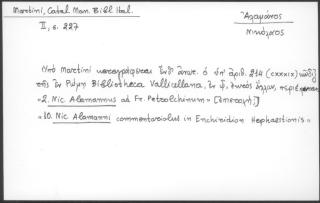 Martini, Catal. Man. Bibl. Ital.
II, s. 227
Ἀλαμάνος
Νικόλαος
Ὑπὸ Martini ἀναγράφεται ὁ ὑπ' ἀριθ. 214 (CXXXIX) κῶδιξ
τῆς ἐν Ῥώμῃ Bibliotheca Vallicellana, ἐν ᾧ,
"2. Nic. Alemannus ad Fr. Petrolchinum" [ἐπιστολή]
"10. Nic. Alamanni commentariolus in Enchiridion Hephaestionis"